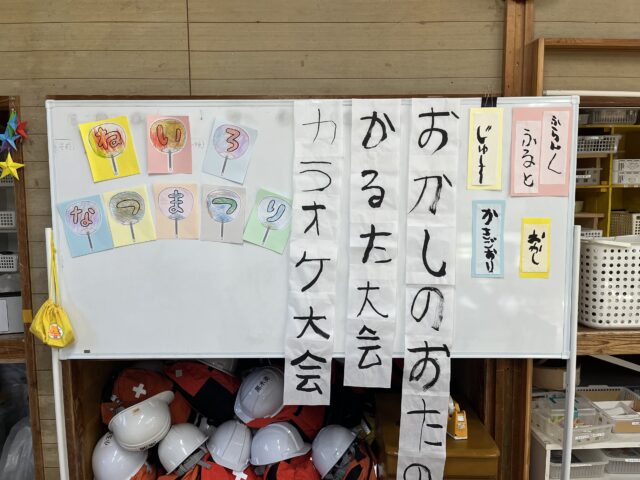 ねいろ
なつまつり
おかしのおたの
かるた大会
カラオケ大会
ふらんく
ふると
じゅーす
おかし
かきごおり